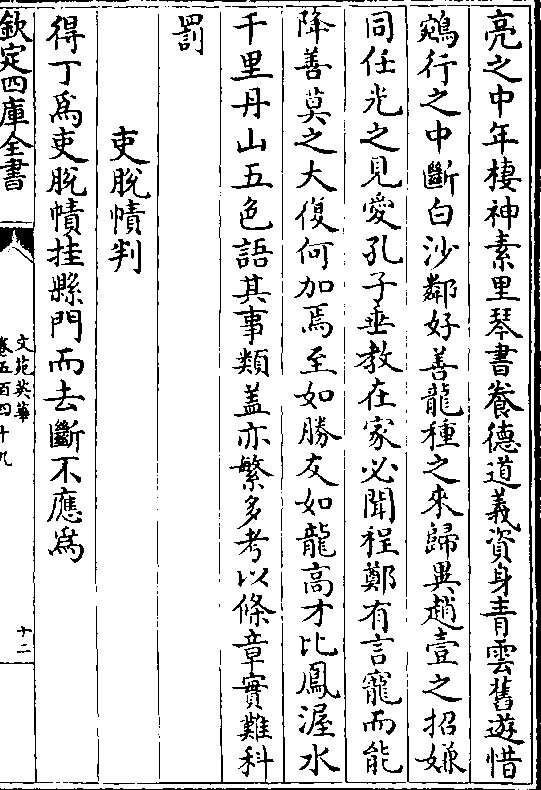 亮之中年棲神素里琴書養德道義資身青雲舊遊惜
鵷行之中斷白沙鄰好善龍種之來歸異趙壹之招嫌
同任光之見愛孔子垂教在家必聞程鄭有言寵而能
降善莫之大復何加焉至如勝友如龍高才比鳳渥水
千里丹山五色語其事類蓋亦繁多考以條章實難科
罰
吏脫幘判
得丁為吏脫幘挂縣門而去斷不應為
欽定四庫全書
文苑英華
卷五百四十九
十二